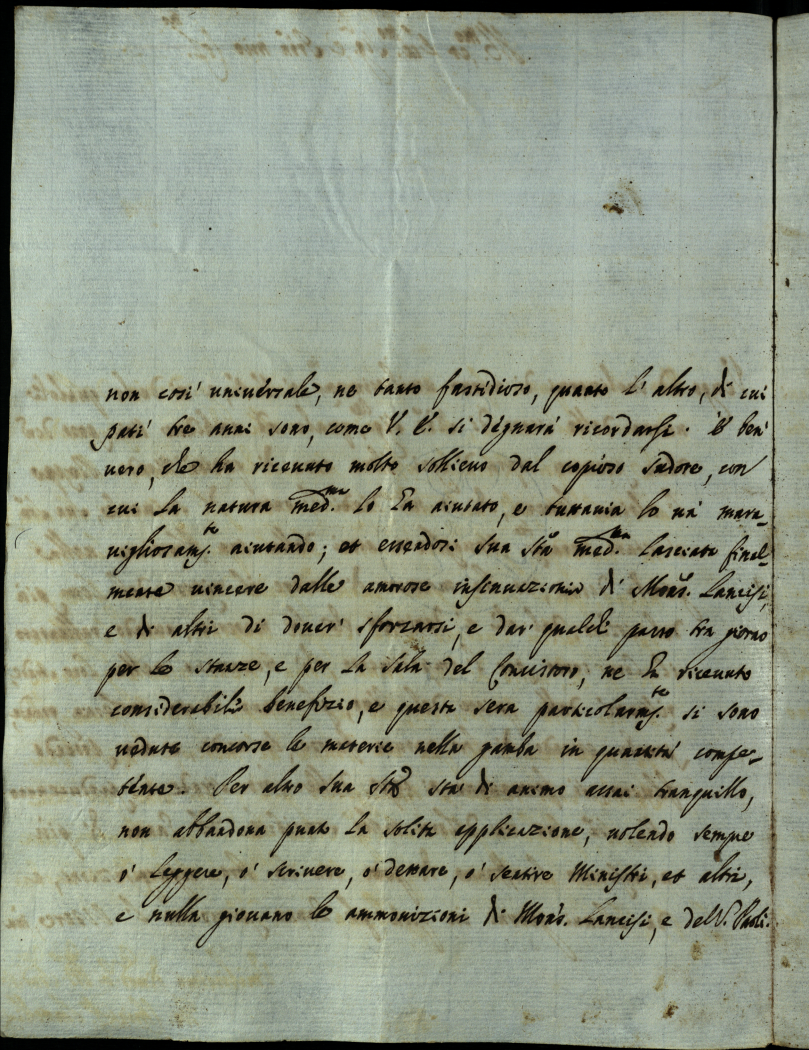 non così universale, ne tanto fastidioso, quanto l'altro, di cui
patì tre anni sono, come V. E. si degnarà ricordarsi. È ben
vero, che ha ricevuto molto sollievo dal copioso sudore, con
cui la natura med.ma lo hà aiutato, e tuttavia lo và mara-
vigliosam.te aiutando; et essendosi Sua Stà med.ma lasciata final-
mente vincere dalle amorose insinuazioni di Mons. Lancisi,
e di altri di dover sforzarsi, e dar qualche passo tra giorno
per le stanze, e per la Sala del Concistoro, ne hà ricevuto
considerabile benefizio, e questa sera particolarm.te si sono
vedute concorse le materie nella gamba in quantità compe-
tente. Per altro Sua Stà stà di animo assai tranquillo,
non abbandona però la solita applicazione, volendo sempre
ò leggere, ò scrivere, ò dettare, ò sentire Ministri, et altri,
e nulla giovano le ammonizioni di Mons. Lancisi, e del S. Paoli.